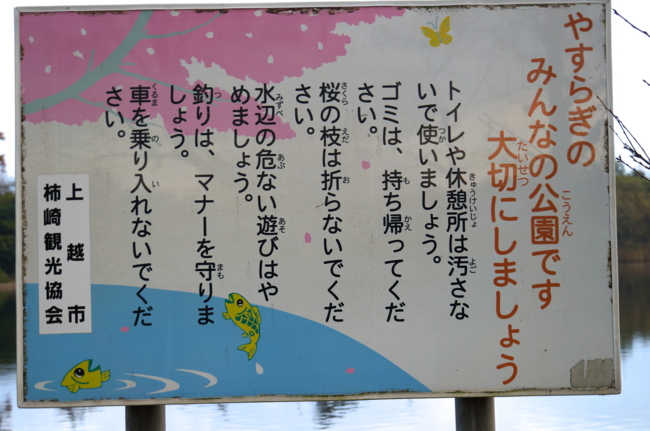 やすらぎの
みんなの公園です
大切にしましょう
トイレや休憩所は汚さな
いで使いましょう。
ゴミは、持ち帰ってくだ
さい。
桜の枝は折らないでくだ
さい。
水辺の危ない遊びはや
めましょう。
釣りは、マナーを守りま
しょう。
車を乗り入れないでくだ
さい。
上越市
柿崎観光協会